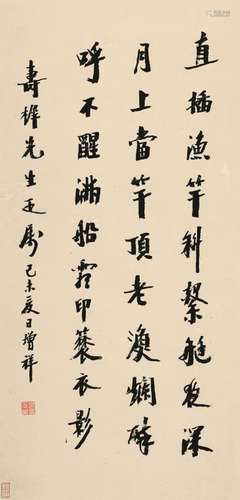 直插漁竿斜繫艇夜深
月上當竿頂老漁爛醉
呼不醒滿船霜印蓑衣影
壽先生疋屬己未夏日增祥